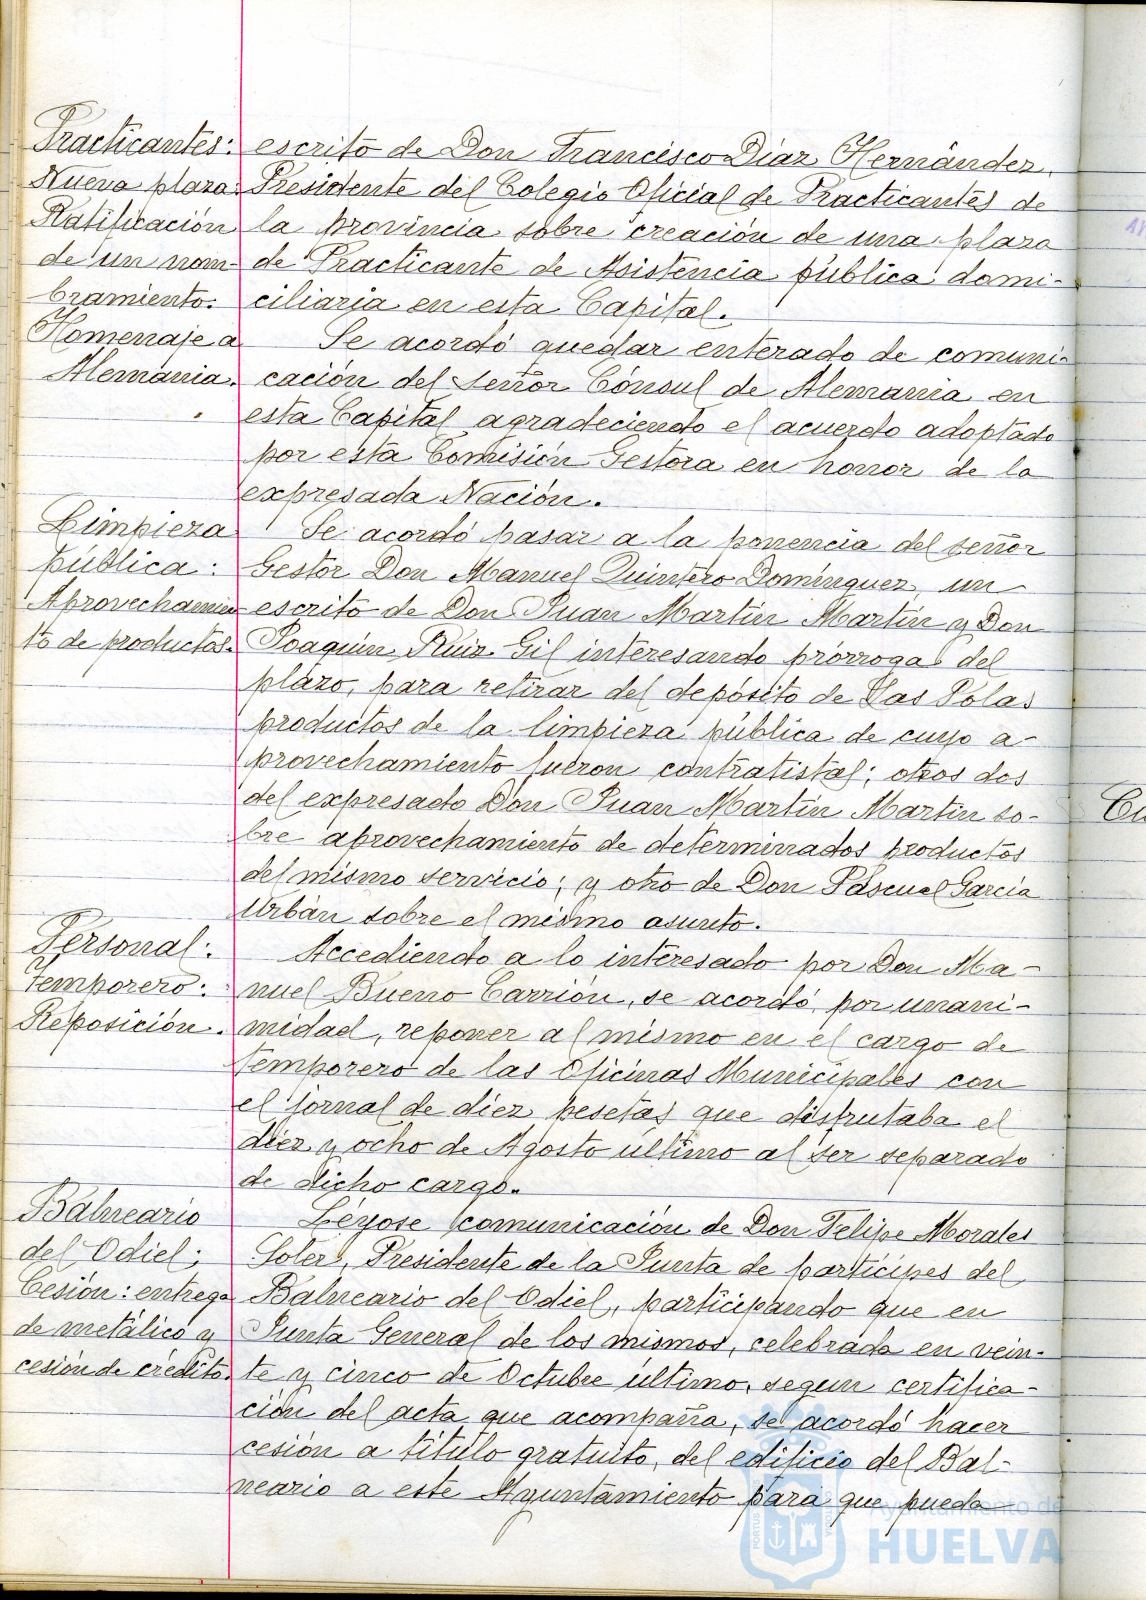 Practicantes:
Nueva plaza.
Ratificación
de un nom-
bramiento.
escrito de Don Francisco Díaz Hernández,
Presidente del Colegio Oficial de Practicantes de
la provincia sobre creación de una plaza
de Practicante de Asistencia pública domi-
ciliaria en esta Capital.
Homenaje a
Alemania.
Se acordó quedar enterado de comuni-
cación del señor Cónsul de Alemania en
esta Capital agradeciendo el acuerdo adoptado
por esta Comisión Gestora en honor de la
expresada Nación.
Limpieza
pública:
Aprovechamien
to de productos.
Se acordó pasar a la ponencia del señor
Gestor Don Manuel Quintero Domínguez, un
escrito de Don Juan Martín Martín y Don
Joaquín Ruiz Gil interesando prórroga del
plazo, para retirar del depósito de Las Polas
productos de la limpieza pública de cuyo a-
provechamiento fueron contratistas; otros dos
del expresado Don Juan Martín Martín so-
bre aprovechamiento de determinados productos
del mismo servicio; y otro de Don Pascual García
Urbán sobre el mismo asunto.
Personal:
Temporero:
Reposición.
Accediendo a lo interesado por Don Ma-
nuel Bueno Carrión, se acordó, por unani-
midad, reponer al mismo en el cargo de
temporero de las Oficinas Municipales con
el jornal de diez pesetas que disfrutaba el
diez y ocho de Agosto último al ser separado
de dicho cargo.
Balneario
del Odiel;
Cesión: entrega
de metálico y
cesión de crédito.
Léyose comunicación de Don Felipe Morales
Soler, Presidente de la Junta de partícipes del
Balneario del Odiel, participando que en
Junta General de los mismos, celebrada en vein-
te y cinco de Octubre último, segun certifica-
ción del acta que acompaña, se acordó hacer
cesión a título gratuito, del edificio del Bal-
neario a este Ayuntamiento para que pueda
Ayuntamiento de
HUELVA